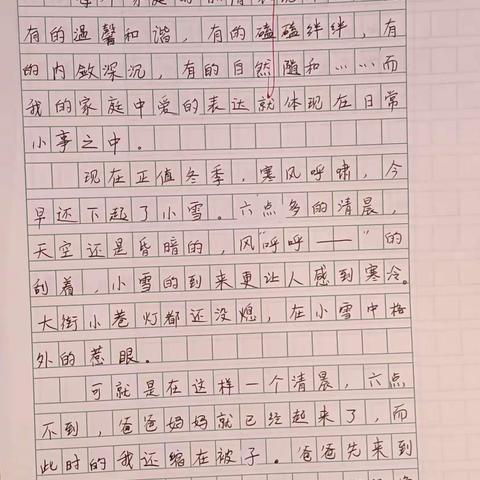 有的温馨和谐，有的磕磕绊绊，有
的内敛深沉，有的自然随和……而
我的家庭中爱的表达就体现在日常
小事之中。
现在正值冬季，寒风呼啸，今
早还下起了小雪。六点多的清晨，
天空还是昏暗的，风“呼呼——”的
刮着，小雪的到来更让人感到寒冷。
大街小巷灯都还没熄，在小雪中格
外的惹眼。
可就是在这样一个清晨，六点
不到，爸爸妈妈就已经起来了，而
此时的我还缩在被子。爸爸先来到